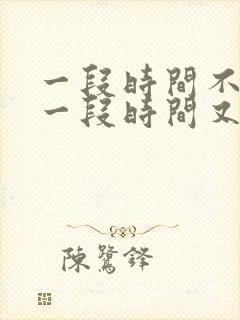 一段時間不
一段時間又
陳鷺鋒